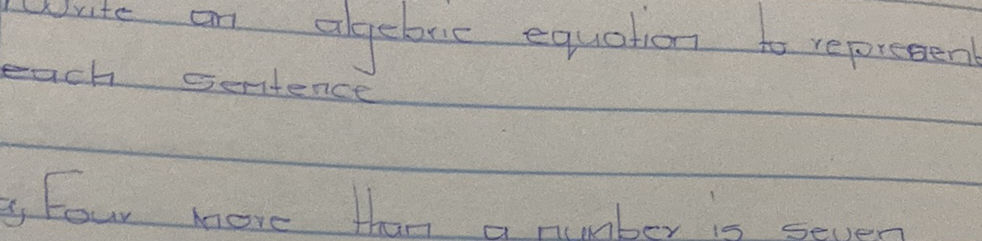 Write an algebric equation to represent
each sentence
a, Four more than a number is seven